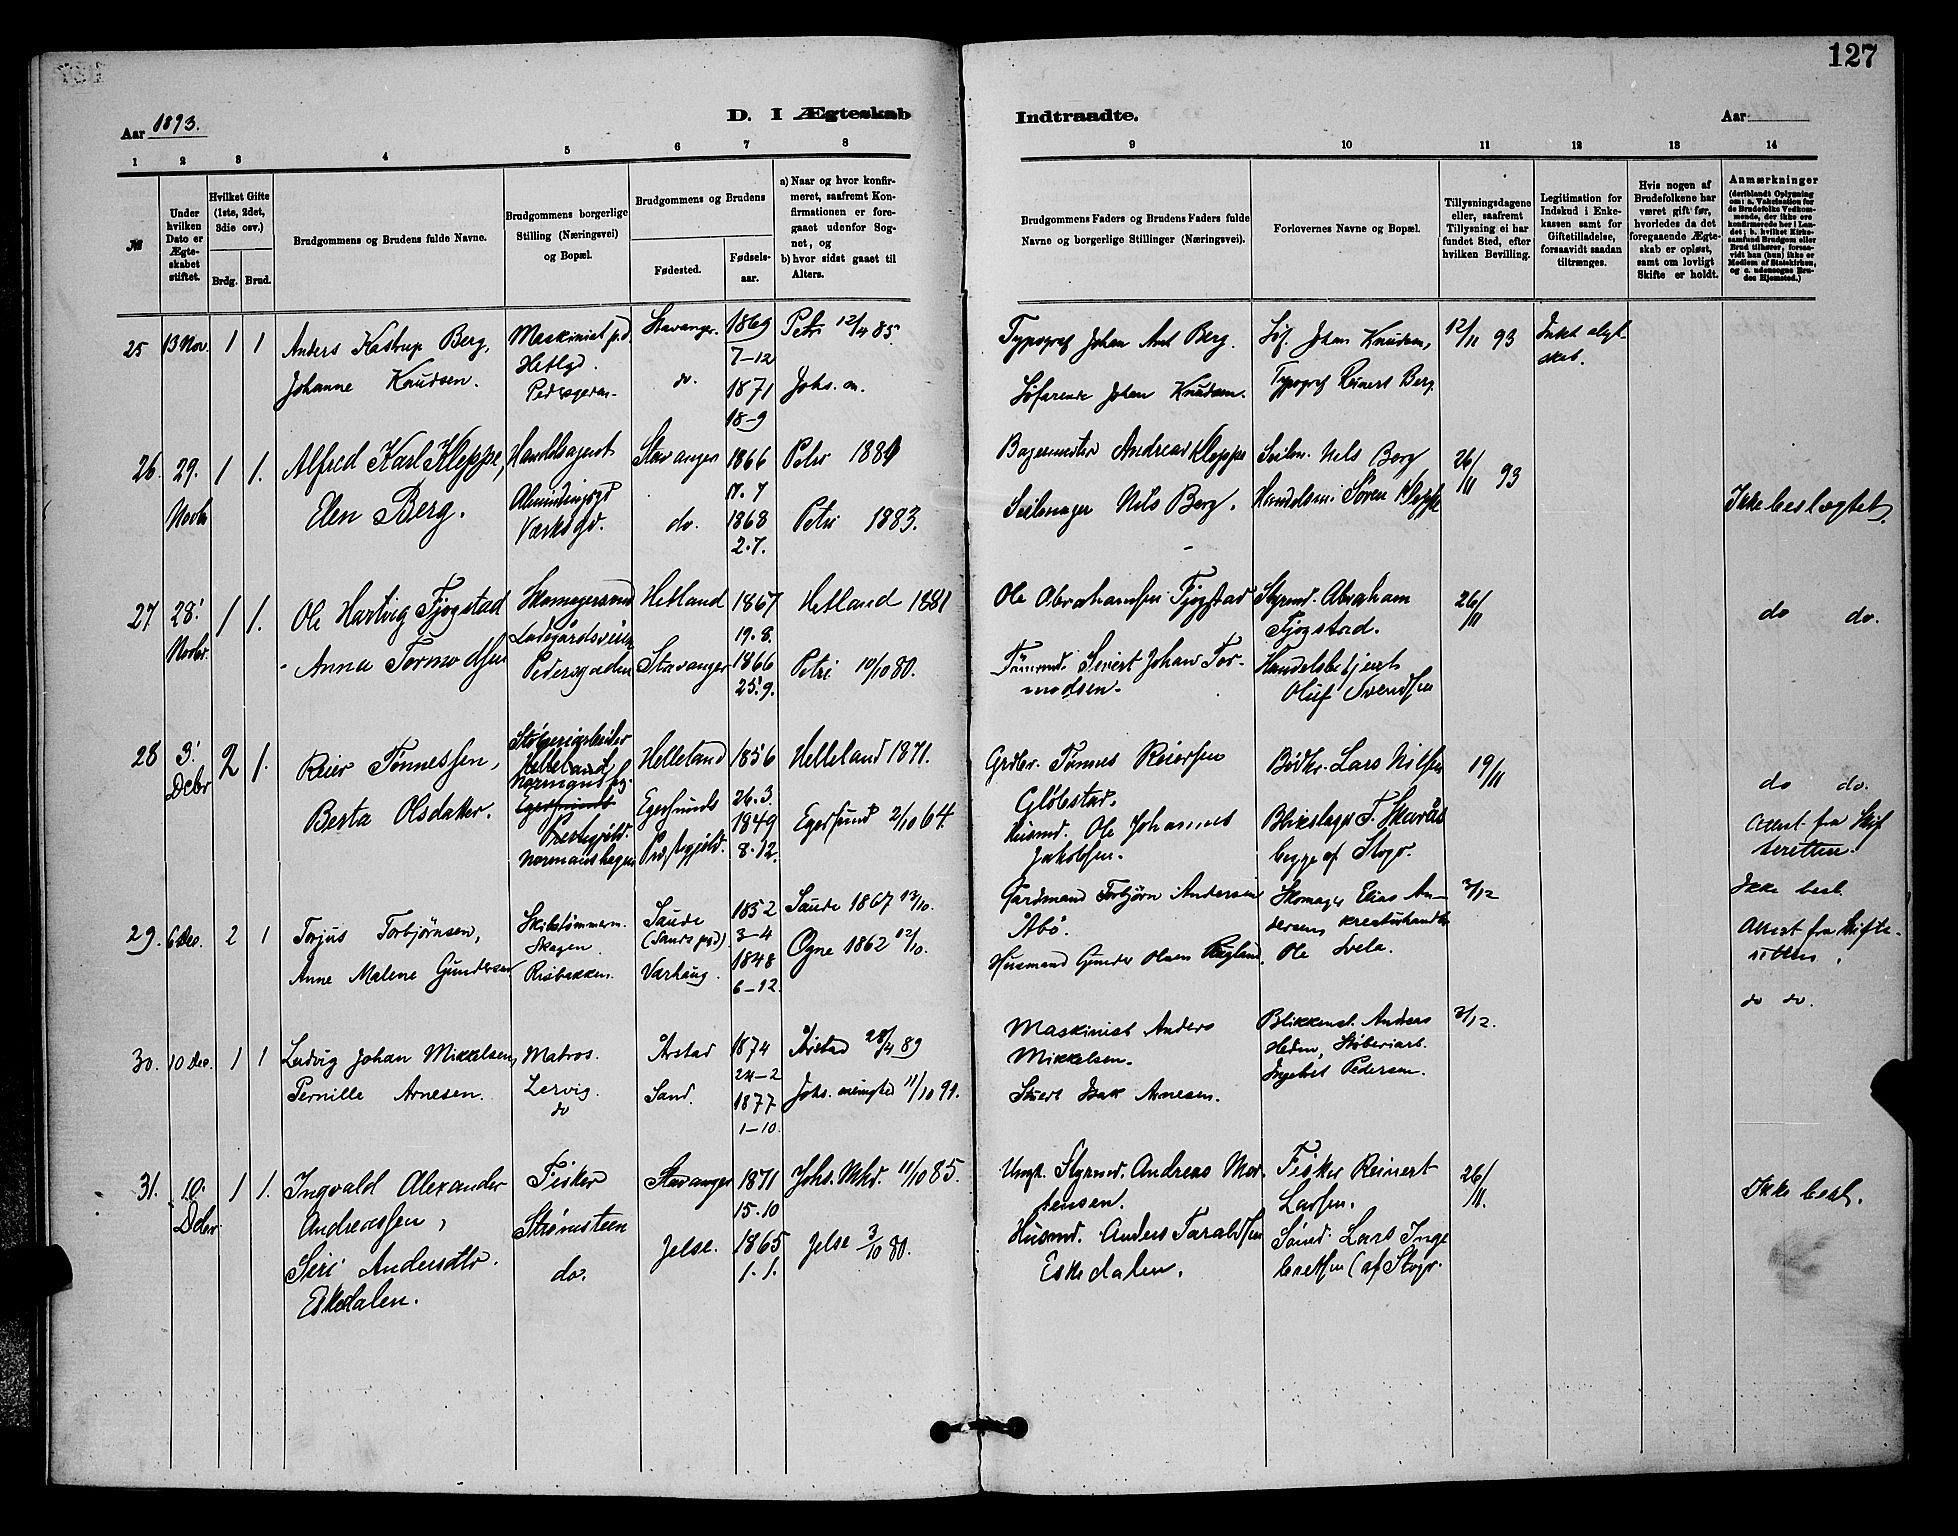 127
Aar 1893.
D. I Ægteskab
Indtraadte.
Aar
1 2 3 4 5 6 7 8 9 10 11 12 13 14
№
Under hvilken Dato er Ægteskabet stiftet.
Hvilket Gifte (1ste, 2det, 3die osv.)
Brdg. Brud.
Brudgommens og Brudens fulde Navne.
Brudgommens borgerlige Stilling (Næringsvei) og Bopæl.
Brudgommens og Brudens
Fødested.
Fødselsaar.
a) Naar og hvor konfirmeret, saafremt Konfirmationen er foregaaet udenfor Sognet, og
b) hvor sidst gaaet til Alters.
Brudgommens Faders og Brudens Faders fulde Navne og borgerlige Stillinger (Næringsvei).
Forlovernes Navne og Bopæl.
Tillysningsdagene eller, saafremt Tillysning ei har fundet Sted, efter hvilken Bevilling.
Legitimation for Indskud i Enkekassen samt for Giftetilladelse, forsaavidt saadan tiltrænges.
Hvis nogen af Brudefolkene har været gift før, hvorledes da det foregaaende Ægteskab er opløst, samt om lovligt Skifte er holdt.
Anmærkninger
(deriblandt Oplysning om: a. Vakcination for de Brudefolks Vedkommende, der ikke ere konfirmerede her i Landet; b. hvilket Kirkesamfund Brudgom eller Brud tilhører, forsaavidt han (hun) ikke er Medlem af Statskirken, og c. udensogns Brudes Hjemsted.)
25 13 Nov. 1 1
Anders Kastrup Berg,
Johanne Knudsen.
Maskinist
Hetlgd.
Stavanger.
do.
1869
7-12
1871
18-9
Petri 12/4 85.
Johs. m.
Typograf Johan Ant Berg.
Søfarende Johan Knudsen.
Søf. Johan Knudsen,
Typograf Reinert Berg.
12/11 93
26. 29. Novbr 1 1.
Alfred Karl Kleppe,
Elen Berg.
Handelsagent
Værksgd.
Stavanger
do.
1866
17.7
1868
2.7.
Petri
Petri 1883.
Bagermester Andreas Kleppe
Seilmager Nils Berg.
Seilm. Nils Berg
Handelsm. Søren Kleppe
26/11 93
Ikke beslægtet.
27 28' Novbr. 1 1.
Ole Hartvig Fjogstad
Anna Tormodsen
Skomagersvend
Ladegårdsveien
Pedersgaden
Hetland
Stavanger
1867
19.8.
1866
25.9.
Hetland 1881
Petri 10/10 80.
Ole Abrahamsen Fjogstad
Tømrmd. Sivert Johan Tormodsen.
Styrmd. Abraham
Fjogstad.
Handelsbetjent
Oluf Svendsen
26/11
do do.
28 3' Debr 2 1.
Reier Tønnessen,
Berta Olsdatter.
Støberiarbeider
Helleland
Egersunds
Prestegjæld.
Normanshagen
Helleland
Egersunds
Præstegjæld.
1856
26.3.
1849
8.12.
Helleland 1871.
Egersund 2/10 64.
Grdbr. Tønnes Reiersen
Gløbstad.
Husmd. Ole Johannes
Jakobsen.
Bødker Lars Nilsen
Blikslager T. Skarås
begge af Stvgr.
19/11
do do.
Attest fra Skifteretten.
29. 6 Dec. 2 1
Torjus Torbjørnsen,
Anne Malene Gundersen
Skibstømmerm.
Skagen
Risbakken.
Saude
(Sands pgd)
Varhaug.
1852
3-4
1848
6-12.
Saude 1867 13/10.
Ogne 1862 12/10.
Gardmand Torbjørn Andersen
Åbø.
Husmand Gunder Olsen Rugland.
Skomager Elias Andersen, kreaturhandler
Ole Svela.
3/12
Ikke besl.
Attest fra Skifteretten.
30. 10 Dec. 1 1
Ludvig Johan Mikkelsen,
Pernille Arnesen.
Matros.
Lervig.
do
Årstad
Sand.
1874
24-2
1877
1-10.
Årstad 28/4 89
Johs. menighed 11/10 91.
Maskinist Anders
Mikkelsen.
Stuert Isak Arnesen.
Blikkensl. Anders
Heden, Støberiarb.
Ingebret Pedersen.
3/12.
do do.
31. 10. Debr 1 1.
Ingvald Alexander
Andreassen,
Siri Andersdtr.
Eskedalen.
Fisker
Strømsteen
do.
Stavanger
Jelse.
1871
15.10
1865
1.1.
Johs. Mhd. 11/10 85.
Jelse 3/10 80.
Ungk. Styrmd. Andreas Mortensen.
Husmd. Anders Taraldsen
Eskedalen.
Fisker Reinert
Larsen.
Sømd. Lars Ingebretsen (af Stvgr.
26/11.
Ikke besl.